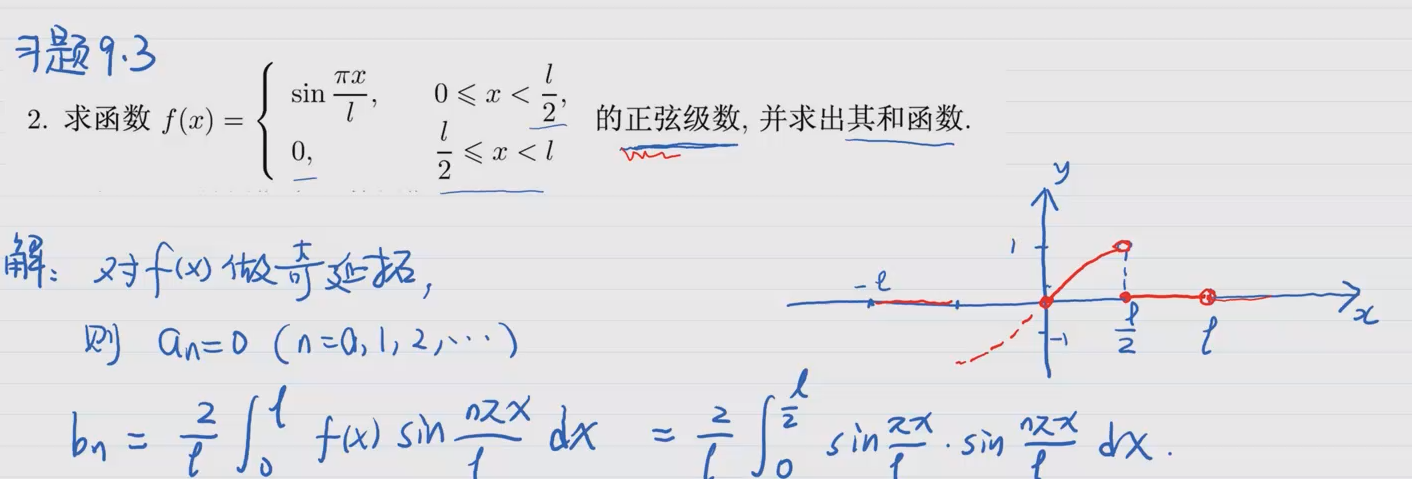 习题9.3
2. 求函数 f(x) = { sin πx/l, 0 ⩽ x < l/2, 0, l/2 ⩽ x < l 的正弦级数, 并求出其和函数.
解: 对f(x)做奇延拓,
则 aₙ=0 (n=0,1,2,⋯)
bₙ = 2/l ∫₀^l f(x) sin nπx/l dx = 2/l ∫₀^(l/2) sin πx/l · sin nπx/l dx.
y
1
-l
-1
l/2
l
x